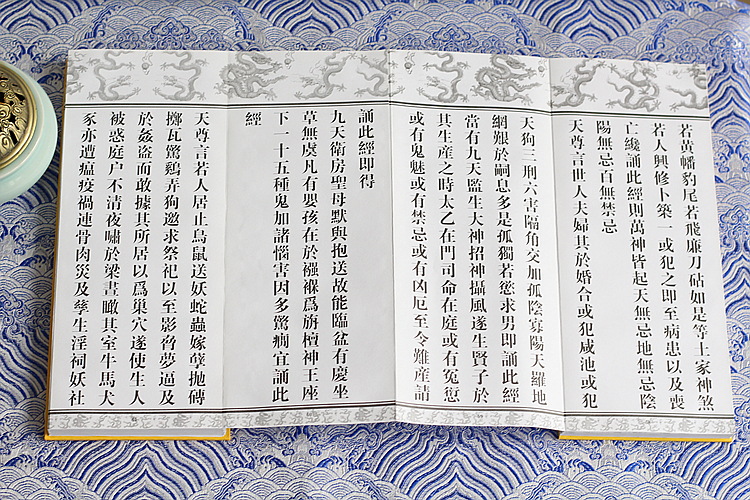 若黄旛豹尾若飛廉刀砧如是等土家神煞
若人興修卜築一或犯之即至病患以及喪
亡纔誦此經則萬神皆起天無忌地無忌陰
陽無忌百無禁忌
天尊言世人夫婦其於婚合或犯咸池或犯
天狗三刑六害隔角交加孤陰寡陽天羅地
網艱於嗣息多是孤獨若慾求男即誦此經
當有九天監生大神招神攝風遂生賢子於
其生産之時太乙在門司命在庭或有冤愆
或有鬼魅或有禁忌或有凶厄至令難産請
誦此經即得
九天衛房聖母默與抱送故能臨盆有慶坐
草無虞凡有嬰孩在於襁褓爲旃檀神王座
下一十五種鬼加諸惱害因多驚癇宜誦此
經
天尊言若人居止鳥鼠送妖蛇蟲嫁孽抛磚
擲瓦驚鷄弄狗邀求祭祀以至影脅夢逼及
於姦盗而敢據其所居以爲巢穴遂使生人
被惑庭户不清夜嘯於梁晝瞰其室牛馬犬
豕亦遭瘟疫禍連骨肉災及孳生淫祠妖社